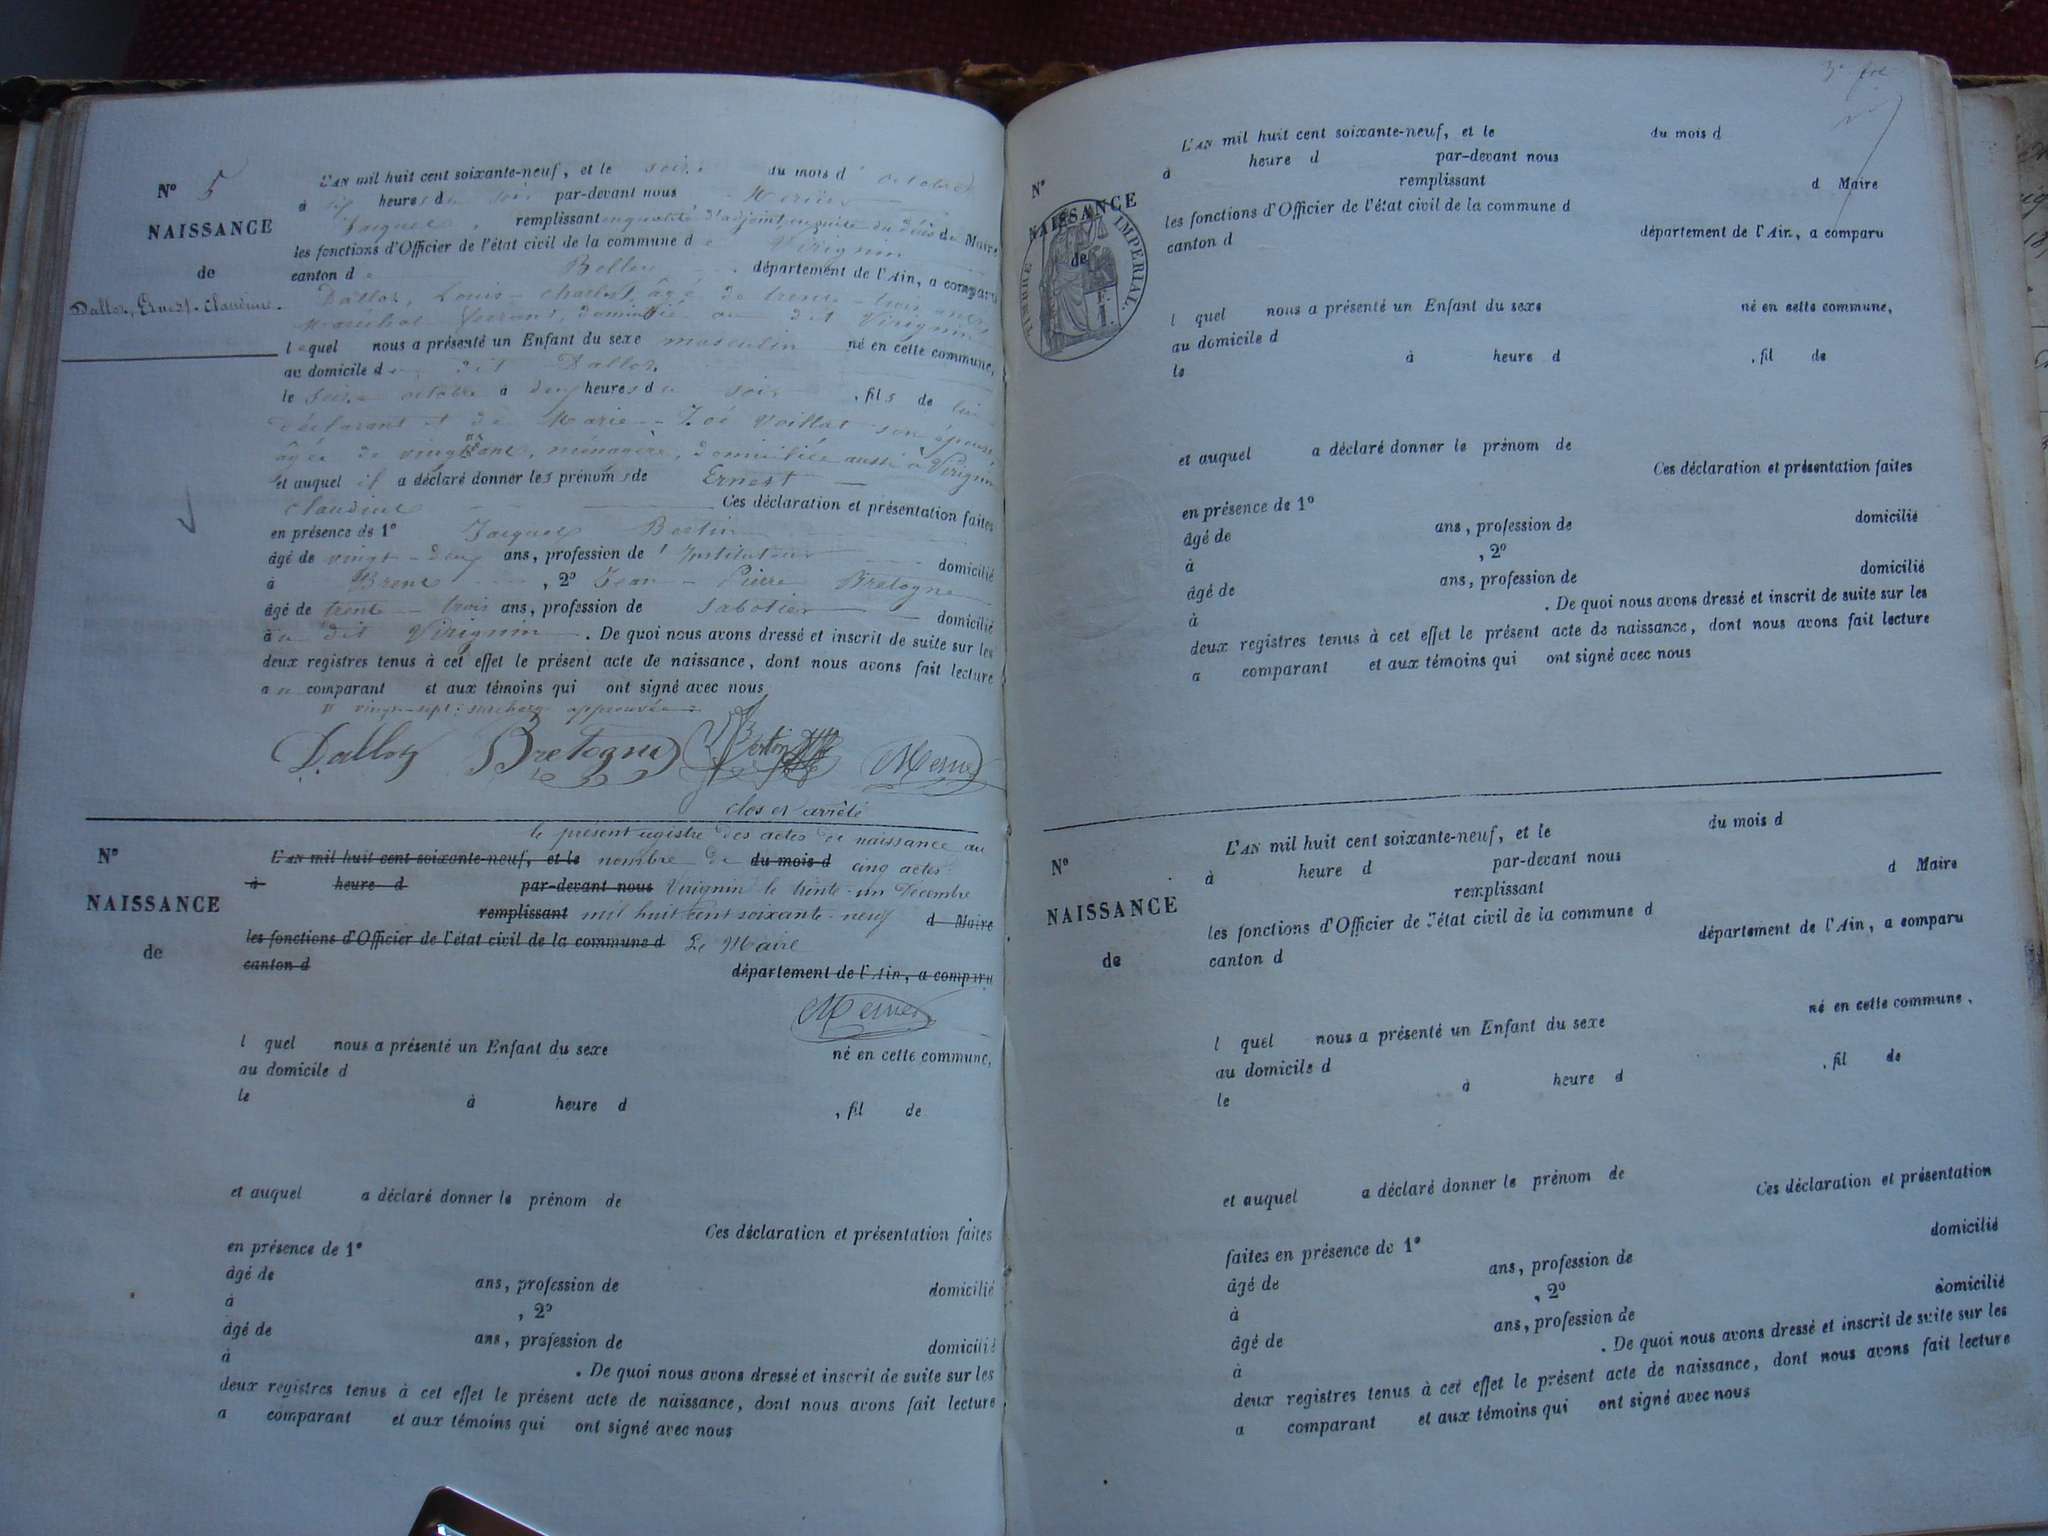 N° 5
NAISSANCE
de
Dalloz, Ernest-Claudius.
L'AN mil huit cent soixante-neuf, et le seize du mois d'octobre
à six heures du soir par-devant nous Mernier
Jacques, remplissant en qualité d'adjoint, ensuite du décès du Maire
les fonctions d'Officier de l'état civil de la commune de Virignin
canton de Belley département de l'Ain, a comparu
Dalloz, Louis-Charles, âgé de trente-trois ans,
Maréchal ferrant, domicilié au dit Virignin
lequel nous a présenté un Enfant du sexe masculin né en cette commune,
au domicile du dit Dalloz.
le seize octobre à deux heures du soir, fils de lui
déclarant et de Marie-Zoé Voillat son épouse
âgée de vingt ans, ménagère, domiciliée aussi à Virignin
et auquel il a déclaré donner les prénoms de Ernest
Claudius Ces déclaration et présentation faites
en présence de 1° Jacques Bertin
âgé de vingt-deux ans, profession de Instituteur domicilié
à Brens, 2° Jean-Pierre Bretogne
âgé de trente-trois ans, profession de sabotier domicilié
au dit Virignin. De quoi nous avons dressé et inscrit de suite sur les
deux registres tenus à cet effet le présent acte de naissance, dont nous avons fait lecture
au comparant et aux témoins qui ont signé avec nous
vingt-sept: surcharge approuvée
Dalloz Bretogne Bertin
clos et arrêté
le présent registre des actes de naissance au
N° L'AN mil huit cent soixante-neuf, et le nombre de du mois d cinq actes
à heure d par-devant nous Virignin le trente-un Décembre
NAISSANCE remplissant mil huit cent soixante-neuf d Maire
les fonctions d'Officier de l'état civil de la commune d Le Maire
de canton d département de l'Ain, a comparu
l quel nous a présenté un Enfant du sexe né en cette commune,
au domicile d
le à heure d , fil de
et auquel a déclaré donner le prénom de
Ces déclaration et présentation faites
en présence de 1°
âgé de ans, profession de domicilié
à , 2°
âgé de ans, profession de domicilié
à . De quoi nous avons dressé et inscrit de suite sur les
deux registres tenus à cet effet le présent acte de naissance, dont nous avons fait lecture
a comparant et aux témoins qui ont signé avec nous
N°
NAISSANCE
de
TIMBRE IMPERIAL.
L'AN mil huit cent soixante-neuf, et le du mois d
à heure d par-devant nous
remplissant d Maire
les fonctions d'Officier de l'état civil de la commune d
canton d département de l'Ain, a comparu
l quel nous a présenté un Enfant du sexe né en cette commune,
au domicile d
le à heure d , fil de
et auquel a déclaré donner le prénom de
Ces déclaration et présentation faites
en présence de 1°
âgé de ans, profession de domicilié
à , 2°
âgé de ans, profession de domicilié
à . De quoi nous avons dressé et inscrit de suite sur les
deux registres tenus à cet effet le présent acte de naissance, dont nous avons fait lecture
a comparant et aux témoins qui ont signé avec nous
N°
NAISSANCE
de
L'AN mil huit cent soixante-neuf, et le du mois d
à heure d par-devant nous
remplissant d Maire
les fonctions d'Officier de l'état civil de la commune d
canton d département de l'Ain, a comparu
l quel nous a présenté un Enfant du sexe né en cette commune,
au domicile d
le à heure d , fil de
et auquel a déclaré donner le prénom de
Ces déclaration et présentation
faites en présence de 1°
âgé de ans, profession de domicilié
à , 2°
âgé de ans, profession de domicilié
à . De quoi nous avons dressé et inscrit de suite sur les
deux registres tenus à cet effet le présent acte de naissance, dont nous avons fait lecture
a comparant et aux témoins qui ont signé avec nous